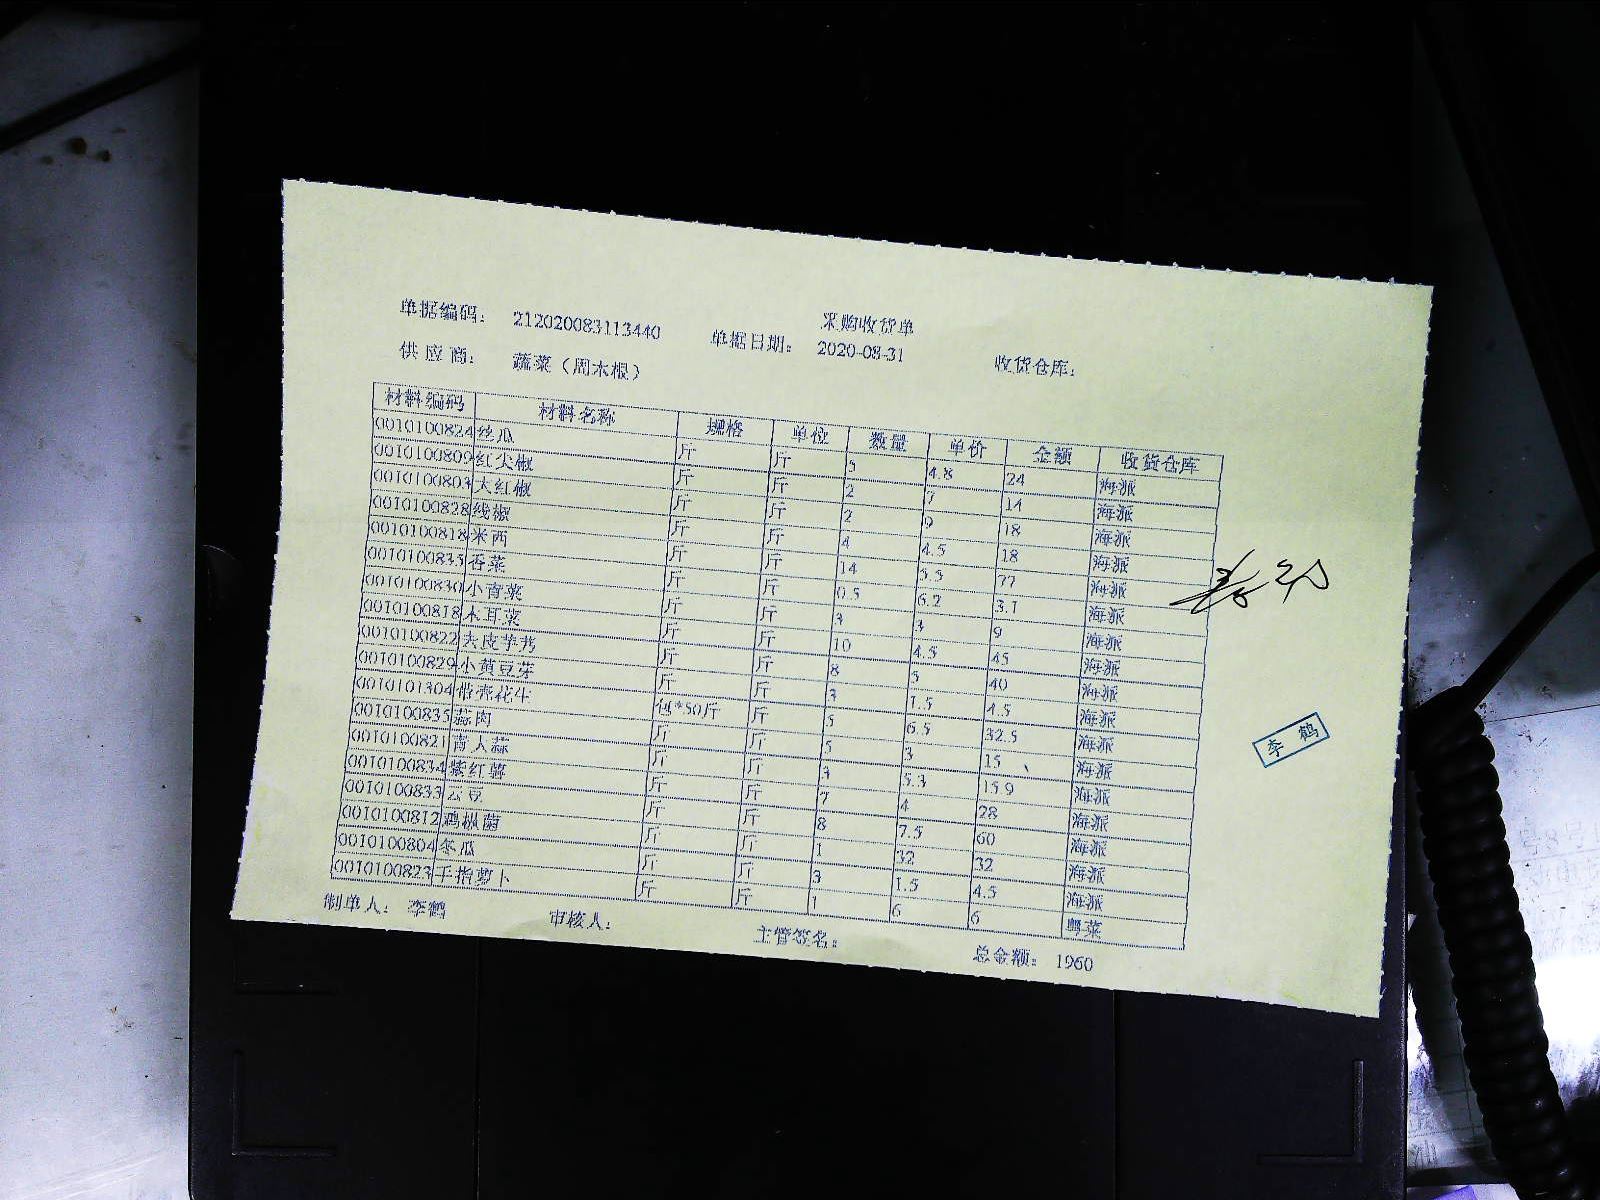 采购收货单
单据编码： 212020083113440 单据日期： 2020-08-31 收货仓库：
供应商： 蔬菜（周木根）
材料编码 材料名称 规格 单位 数量 单价 金额 收货仓库
0010100824 丝瓜 斤 斤 5 4.8 24 海派
0010100809 红尖椒 斤 斤 2 7 14 海派
0010100803 大红椒 斤 斤 2 9 18 海派
0010100828 线椒 斤 斤 4 4.5 18 海派
0010100818 米西 斤 斤 14 5.5 77 海派
0010100835 香菜 斤 斤 0.5 6.2 3.1 海派
0010100830 小青菜 斤 斤 3 3 9 海派
0010100818 木耳菜 斤 斤 10 4.5 45 海派
0010100822 去皮芋艿 斤 斤 8 5 40 海派
0010100829 小黄豆芽 斤 斤 3 1.5 4.5 海派
0010101304 带壳花生 包*50斤 斤 5 6.5 32.5 海派
0010100835 蒜肉 斤 斤 5 3 15 海派
0010100821 青大蒜 斤 斤 3 5.3 15.9 海派
0010100834 紫红薯 斤 斤 7 4 28 海派
0010100833 云豆 斤 斤 8 7.5 60 海派
0010100812 鸡枞菌 斤 斤 1 32 32 海派
0010100804 冬瓜 斤 斤 3 1.5 4.5 海派
0010100823 手指萝卜 斤 斤 1 6 6 粤菜
制单人： 李鹤 审核人： 主管签名： 总金额： 1960
李鹤